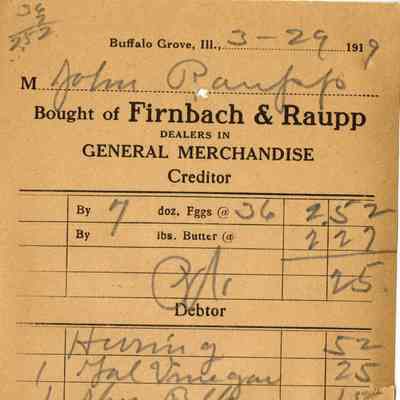 36
7
2.52
Buffalo Grove, Ill., 3-29 1919
M John Raupp
Bought of Firnbach & Raupp
DEALERS IN
GENERAL MERCHANDISE
Creditor
By 7 doz. Eggs @ 36 2.52
By lbs. Butter @ 2 27
25
Debtor
52
1 Gal Vinegar 25
1